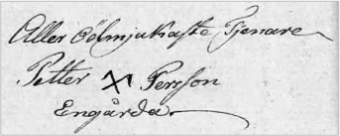 Aller Ödmjukaste Tjenare
Petter X Persson
Engårda